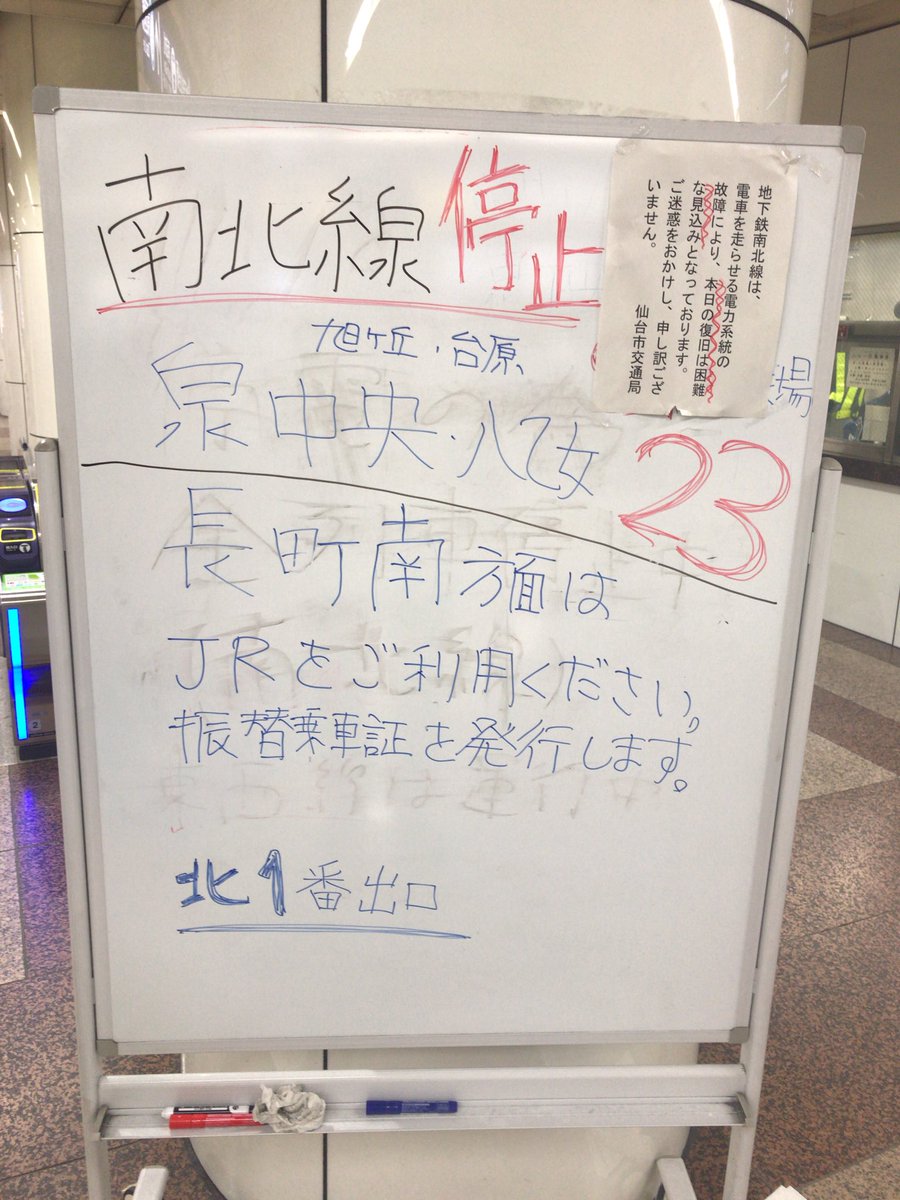 南北線 停止
地下鉄南北線は、
電車を走らせる電力系統の
故障により、本日の復旧は困難
な見込みとなっております。
ご迷惑をおかけし、申し訳ござ
いません。
仙台市交通局
旭ヶ丘・台原
場
泉中央・八乙女
23
長町南方面は
JRをご利用ください。
振替乗車証を発行します。
北1番出口